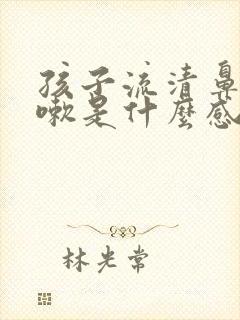 孩子流清鼻
嗽是什麼感
林光常